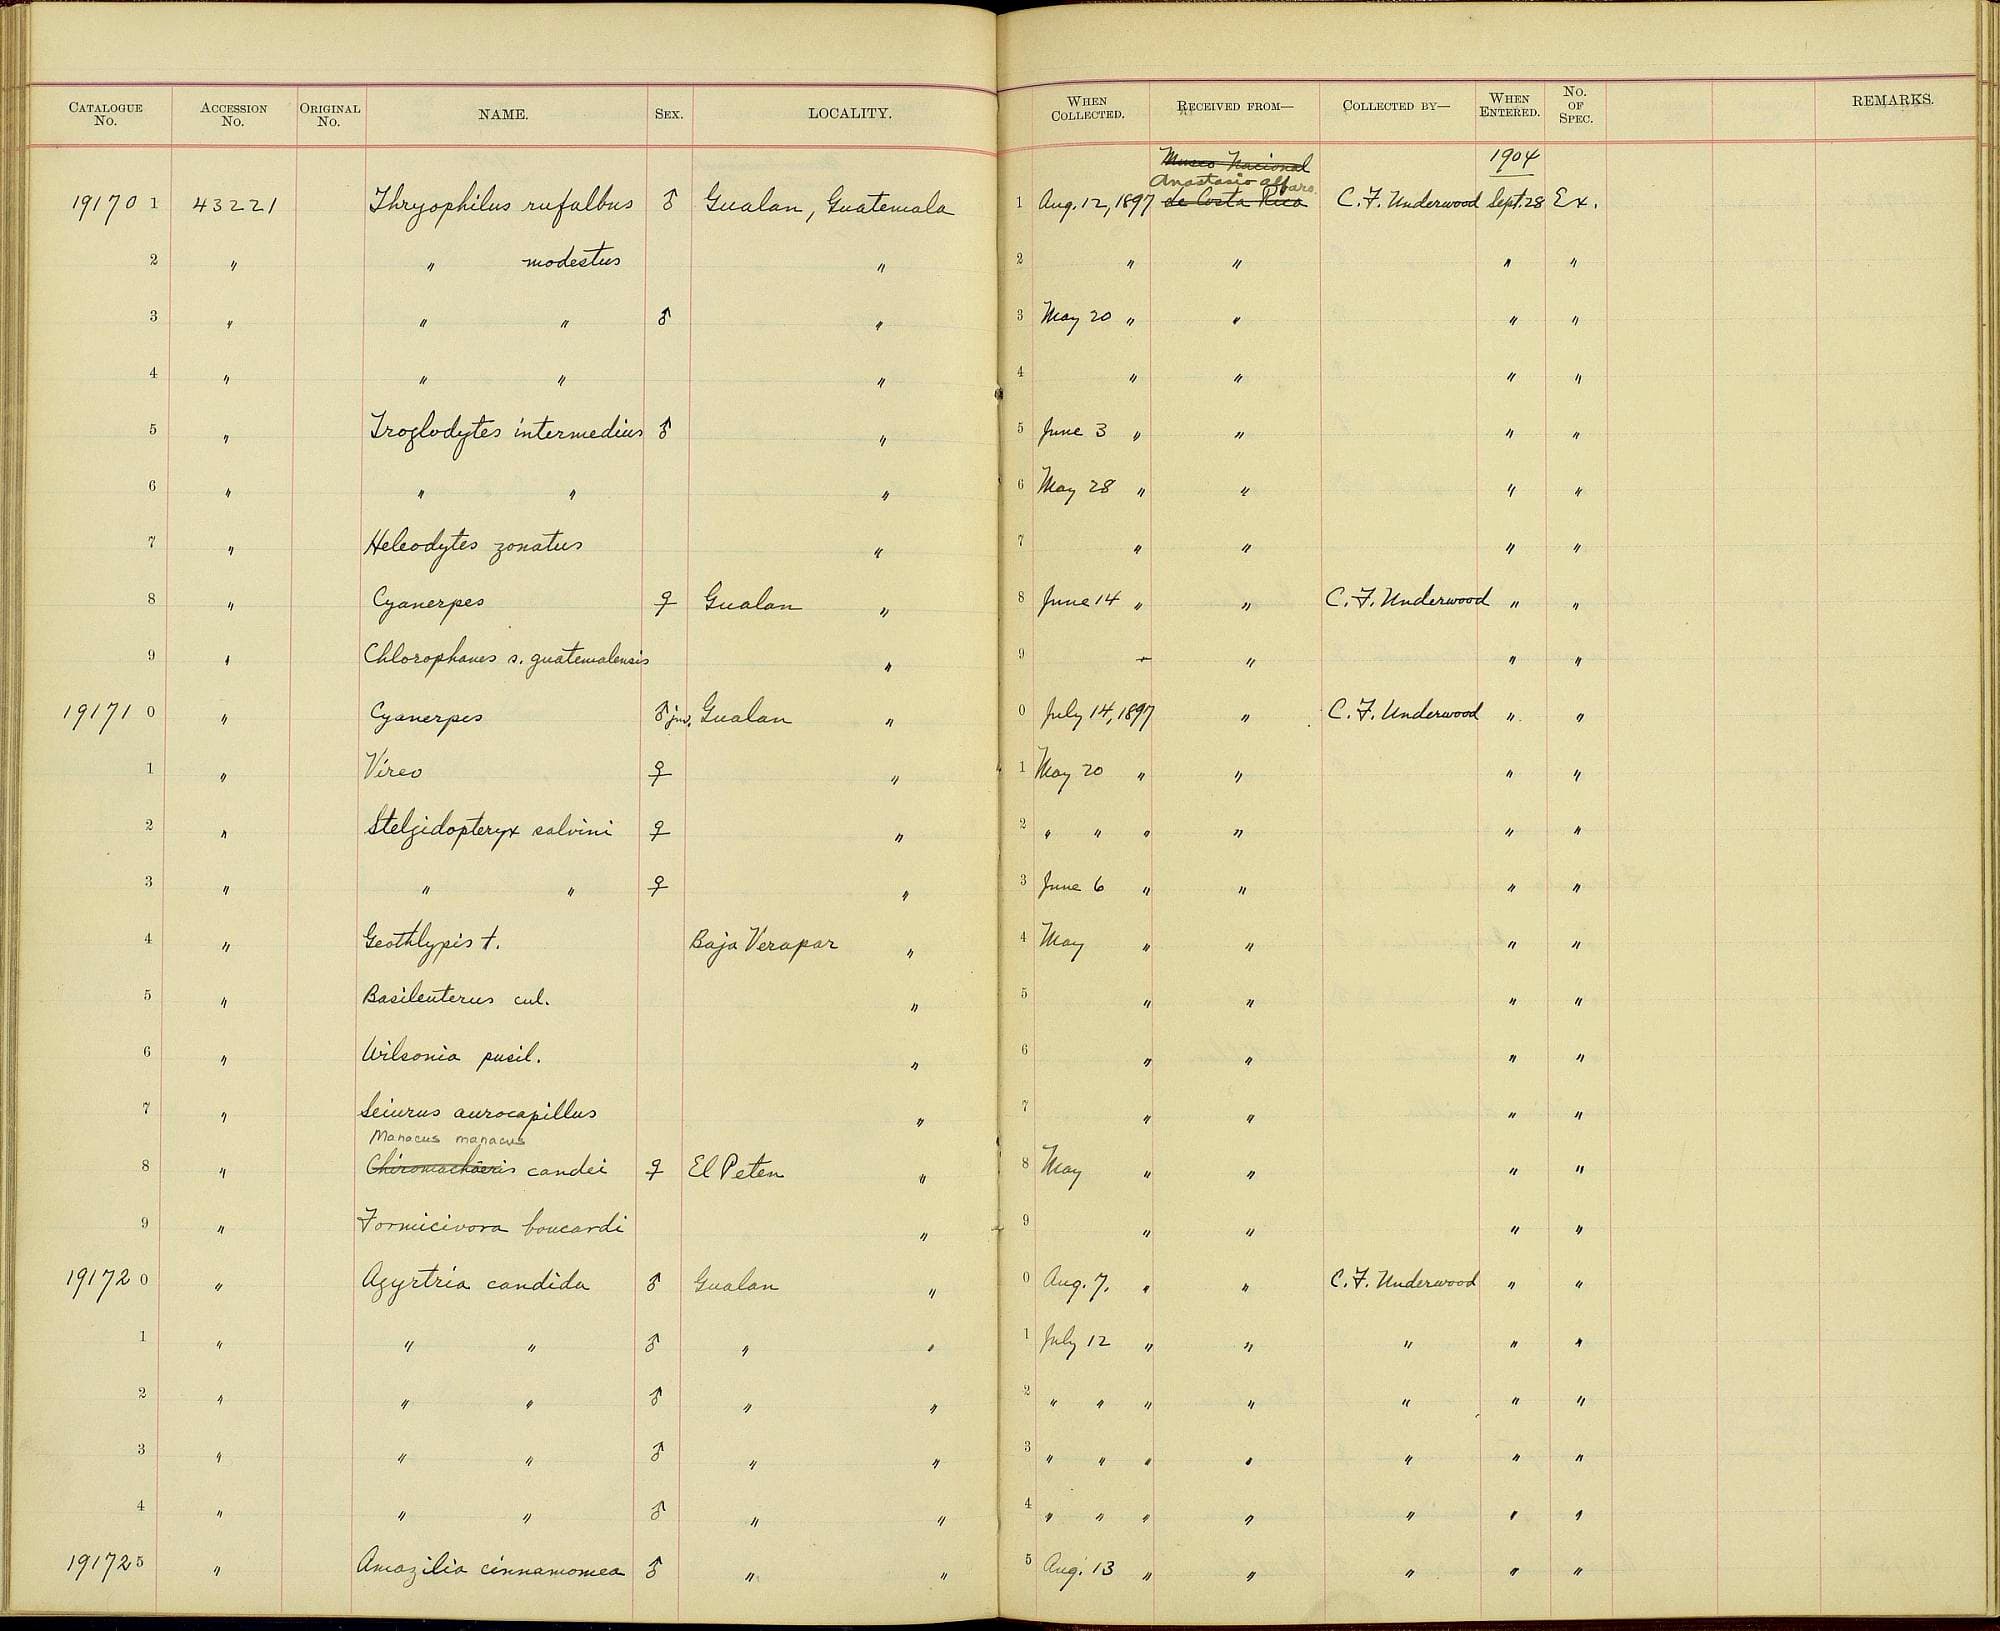 CATALOGUE No. ACCESSION No. ORIGINAL No. NAME. SEX. LOCALITY. WHEN COLLECTED. RECEIVED FROM— COLLECTED BY— WHEN ENTERED. No. OF SPEC. REMARKS.
Museo Nacional 1904
Anastasio Alfaro
191701 43221 Thryophilus rufalbus ♂ Gualan, Guatemala 1 Aug. 12, 1897 de Costa Rica C. F. Underwood Sept. 28 Ex.
2 " " modestus " 2 " " " "
3 " " " ♂ " 3 May 20 " " " "
4 " " " " 4 " " " "
5 " Troglodytes intermedius ♂ " 5 June 3 " " " "
6 " " " " 6 May 28 " " " "
7 " Heleodytes zonatus " 7 " " " "
8 " Cyanerpes ♀ Gualan " 8 June 14 " " C. F. Underwood " "
9 " Chlorophanes s. guatemalensis " 9 " " " "
191710 " Cyanerpes ♂ juv. Gualan " 0 July 14, 1897 " C. F. Underwood " "
1 " Vireo ♀ " 1 May 20 " " " "
2 " Stelgidopteryx salvini ♀ " 2 " " " " " "
3 " " " ♀ " 3 June 6 " " " "
4 " Geothlypis t. Baja Verapaz " 4 May " " " "
5 " Basileuterus cul. " 5 " " " "
6 " Wilsonia pusil. " 6 " " " "
7 " Seiurus aurocapillus " 7 " " " "
Manacus manacus
8 " Chiromachaeris candei ♀ El Peten " 8 May " " " "
9 " Formicivora boucardi " 9 " " " "
191720 " Agyrtria candida ♂ Gualan " 0 Aug. 7. " " C. F. Underwood " "
1 " " " ♂ " " 1 July 12 " " " " "
2 " " " ♂ " " 2 " " " " " " "
3 " " " ♂ " " 3 " " " " " " "
4 " " " ♂ " " 4 " " " " " " "
191725 " Amazilia cinnamomea ♂ " " 5 Aug. 13 " " " " "